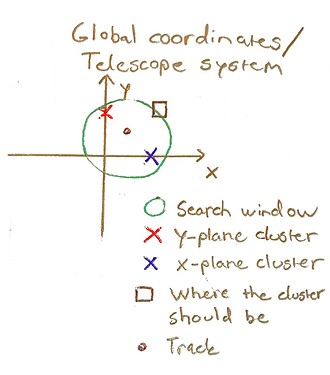 Global coordinates/
Telescope system
Y
X
Search window
Y-plane cluster
X-plane cluster
Where the cluster
should be
Track